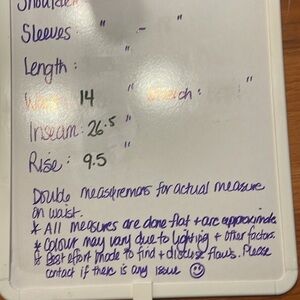 Shoulder
Sleeves : " - "
Length : "
Waist : 14 " Stretch : "
Inseam : 26.5 "
Rise : 9.5 "
Double measuremens for actual measure
on waist.
* All measures are done flat + are approximate
* Colour may vary due to lighting + other factors.
* Best effort made to find + disclose flaws. Please
contact if there is any issue ☺